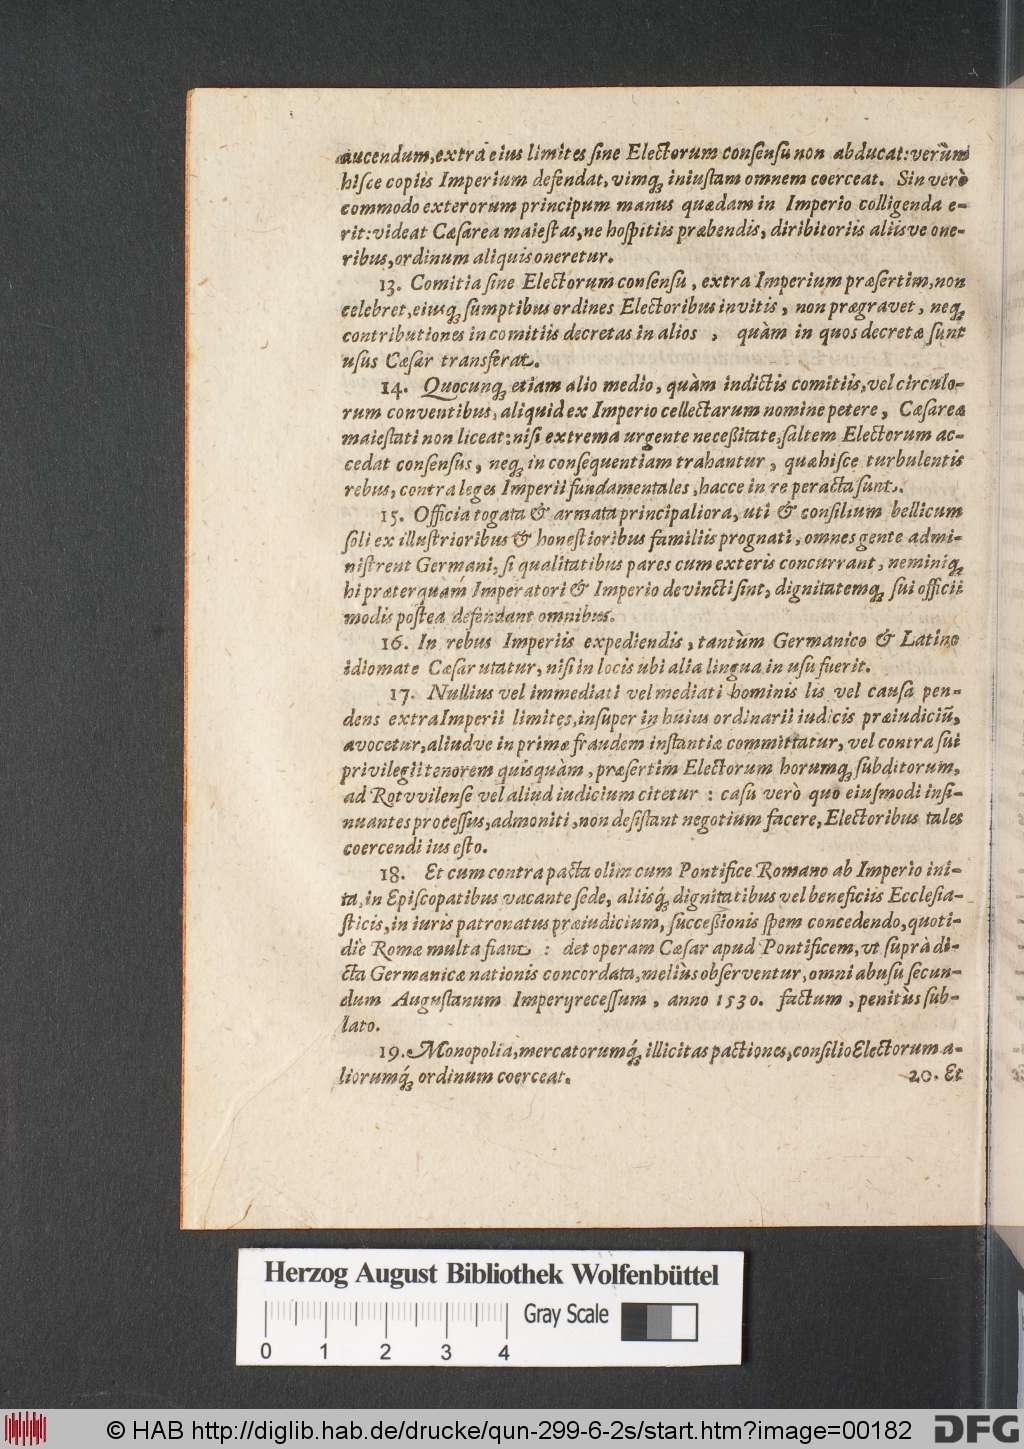 aucendum, extra eius limites sine Electorum consensu non abducat: verùm
hisce copiis Imperium defendat, vimq́; iniustam omnem coerceat. Sin verò
commodo exterorum principum manus quædam in Imperio colligenda e-
rit: videat Cæsarea maiestas, ne hospitiis præbendis, diribitoriis aliisve one-
ribus, ordinum aliquis oneretur.
13. Comitia sine Electorum consensu, extra Imperium præsertim, non
celebret, eiusq; sumptibus ordines Electoribus invitis, non prægravet, neq;
contributiones in comitiis decretas in alios, quàm in quos decretæ sunt
usus Cæsar transferat.
14. Quocunq; etiam alio medio, quàm indictis comitiis, vel circulo-
rum conventibus, aliquid ex Imperio cellectarum nomine petere, Cæsareæ
maiestati non liceat: nisi extrema urgente neceßitate, saltem Electorum ac-
cedat consensus, neq; in consequentiam trahantur, quæ hisce turbulentis
rebus, contra leges Imperii fundamentales, hacce in re peracta sunt.
15. Officia togata & armata principaliora, uti & consilium bellicum
soli ex illustrioribus & honestioribus familiis prognati, omnes gente admi-
nistrent Germani, si qualitatibus pares cum exteris concurrant, neminiq;
hi præterquàm Imperatori & Imperio devincti sint, dignitatemq; sui officii
modis postea defendant omnibus.
16. In rebus Imperiis expediendis, tantùm Germanico & Latino
idiomate Cæsar utatur, nisi in locis ubi alia lingua in usu fuerit.
17. Nullius vel immediati vel mediati hominis lis vel causa pen-
dens extra Imperii limites, insuper in huius ordinarii iudicis præiudiciũ,
avocetur, aliudve in primæ fraudem instantiæ committatur, vel contra sui
privilegii tenorem quisquàm, præsertim Electorum horumq; subditorum,
ad Rotvvilense vel aliud iudicium citetur : casu verò quo eiusmodi insi-
nuantes processus, admoniti, non desistant negotium facere, Electoribus tales
coercendi ius esto.
18. Et cum contra pacta olim cum Pontifice Romano ab Imperio ini-
ta, in Episcopatibus vacante sede, aliisq́; dignitatibus vel beneficiis Ecclesia-
sticis, in iuris patronatus præiudicium, succeßionis spem concedendo, quoti-
die Romæ multa fiant : det operam Cæsar apud Pontificem, ut suprà di-
cta Germanicæ nationis concordata, meliùs observentur, omni abusu secun-
dum Augustanum Imperij recessum, anno 1530. factum, penitùs sub-
lato.
19. Monopolia, mercatorumq́; illicitas pactiones, consilio Electorum a-
liorumq́; ordinum coerceat. 20. Et
Herzog August Bibliothek Wolfenbüttel
Gray Scale
0 1 2 3 4
© HAB http://diglib.hab.de/drucke/qun-299-6-2s/start.htm?image=00182
DFG